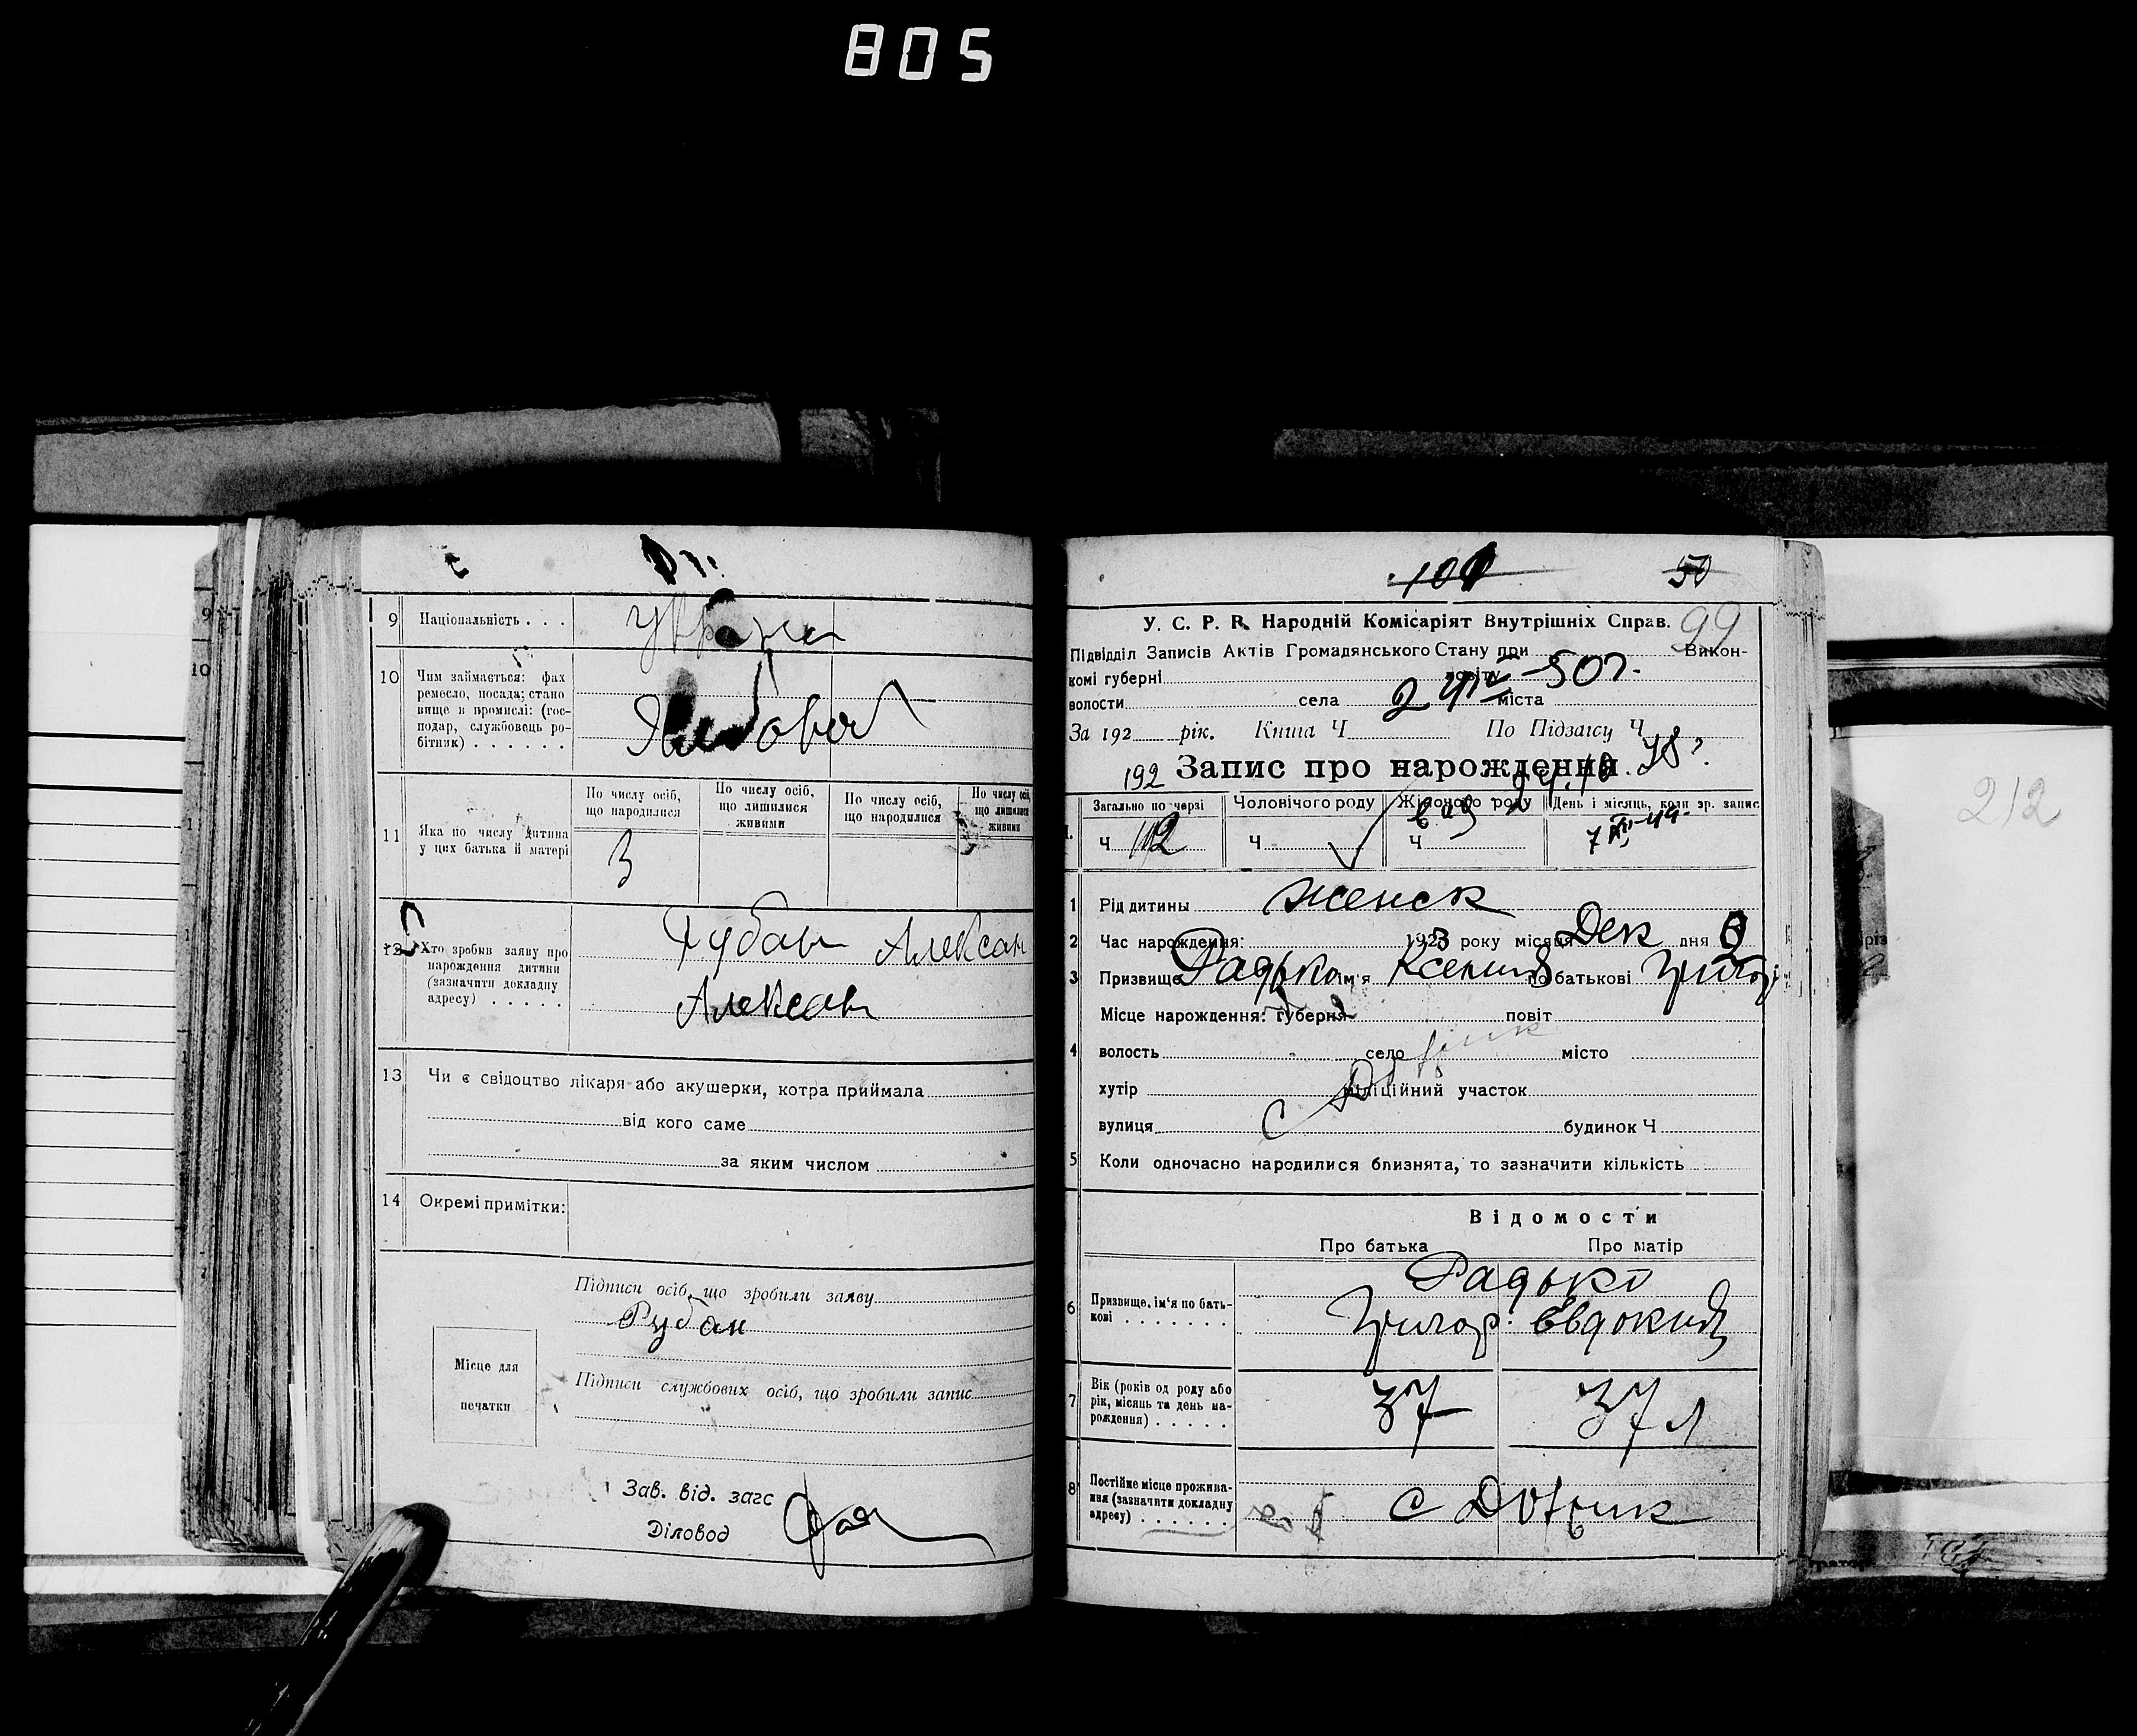 805
9 Національність . . . Украин
10 Чим займається: фах
ремесло, посада; стано
вище в промислі: (гос-
подар, службовець ро-
бітник) . . . . . .
По числу осіб, що народилися
По числу осіб, що лишилися живими
По числу осіб, що народилися
По числу осіб, що лишилися живими
11 Яка по числу дитина
у цих батька й матері
3
12 Хто зробив заяву про
нарождення дитини
(зазначити докладну
адресу) . . . . .
Рубан Алексан
Алексан
13 Чи є свідоцтво лікаря або акушерки, котра приймала
від кого саме
за яким числом
14 Окремі примітки:
Підписи осіб, що зробили заяву
Рубан
Місце для
печатки
Підписи службових осіб, що зробили запис
Зав. від. загс
Діловод
50
99
У. С. Р. Р. Народній Комісаріят Внутрішніх Справ.
Підвідділ Записів Актів Громадянського Стану при Викон-
комі губерні повіту
волости села міста
За 192 рік. Книга Ч По Підзагсу Ч
192 Запис про нарождення
Загально по черзі Чоловічого роду Жіночого роду День і місяць, коли зр. запис
Ч 112 Ч Ч
1 Рід дитины женск
2 Час нарождення: 1923 року місяця Дек дня
3 Призвище Радько ім'я Ксения по батькові Григор
Місце нарождення: губерня повіт
4 волость село місто
хутір міліційний участок
вулиця будинок Ч
5 Коли одночасно народилися близнята, то зазначити кількість
Відомости
Про батька Про матір
6 Призвище, ім'я по бать-
кові . . . . . . .
Радько
Григор. Евдокия
7 Вік (років од роду або
рік, місяць та день на-
рождення) . . . . .
37 37 л
8 Постійне місце прожива-
ння (зазначити докладну
адресу) . . . . . .
212